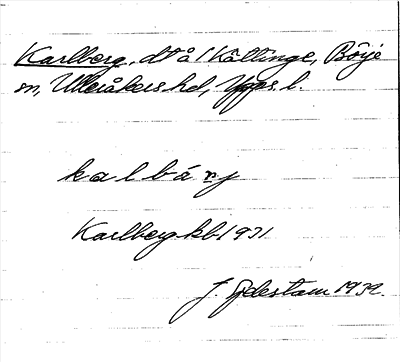 Karlberg, dt å l Källinge, Börje
sn, Ulleråkers hd, Upps. l.
kalbárj
Karlberg kb 1931
J. Sydestam 1932.